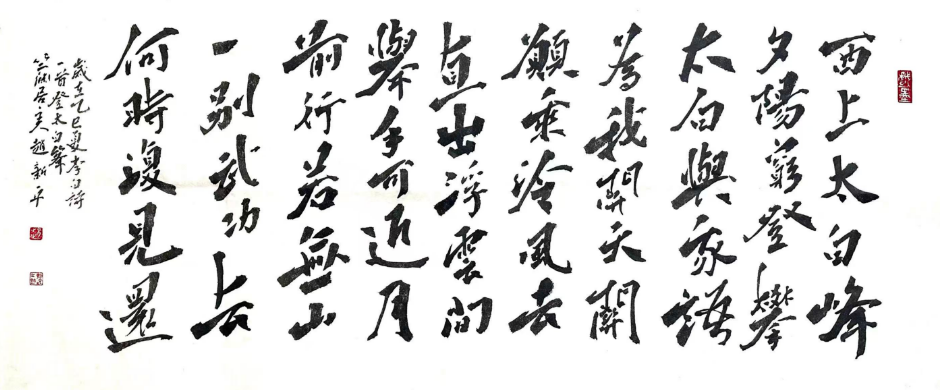 西上太白峰
夕陽窮登攀
太白與我語
為我開天關
願乘泠風去
直出浮雲間
舉手可近月
前行若無山
一別武功去
何時復見還
歲在乙巳夏李白詩
一首登太白峰
居主趙新平